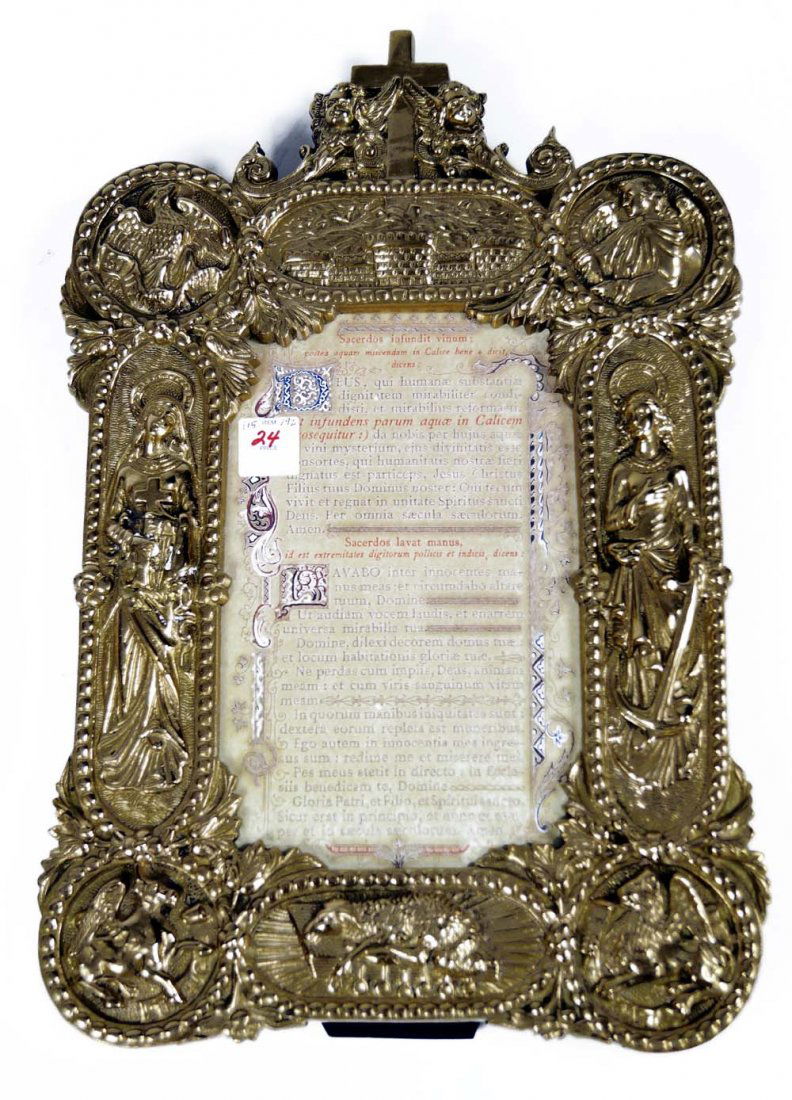 Sacerdos infundit vinum:
postea aquam miscendam in Calice bene dicit,
dicens:
DEUS, qui humanæ substantiæ
dignitatem mirabiliter condi-
disti, et mirabilius reformasti
et infundens parum aquæ in Calicem
prosequitur:) da nobis per hujus aquæ
et vini mysterium, ejus divinitatis esse
consortes, qui humanitatis nostræ fieri
dignatus est particeps, Jesus Christus
Filius tuus Dominus noster: Qui tecum
vivit et regnat in unitate Spiritus sancti
Deus. Per omnia sæcula sæculorum.
Amen.
Sacerdos lavat manus,
id est extremitates digitorum pollicis et indicis, dicens:
LAVABO inter innocentes ma-
nus meas: et circumdabo altare
tuum, Domine
Ut audiam vocem laudis, et enarrem
universa mirabilia tua
Domine, dilexi decorem domus tuæ
et locum habitationis gloriæ tuæ.
Ne perdas cum impiis, Deus, animam
meam: et cum viris sanguinum vitam
meam
In quorum manibus iniquitates sunt:
dextera eorum repleta est muneribus.
Ego autem in innocentia mea ingres-
sus sum: redime me et miserere mei.
Pes meus stetit in directo: in Eccle-
siis benedicam te, Domine
Gloria Patri, et Filio, et Spiritui sancto
Sicut erat in principio, et nunc et sem-
per et in sæcula sæculorum. Amen.
24